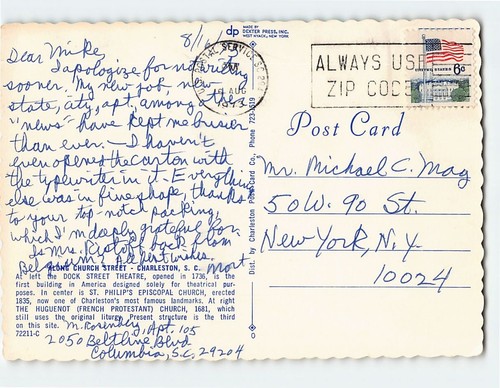 8/11
MADE BY
dp DEXTER PRESS, INC.
WEST NYACK, NEW YORK
Dear Mike,
I apologize for not writing
sooner. My new job, new
state, city, apt., among other
"news" have kept me busier
than ever. — I haven't
even opened the carton with
the typewriter in it. Everything
else was in fine shape, thanks
to your top-notch packing,
which I'm deeply grateful for.
Is Mrs. back from
Belgium? Best wishes.
Most
ALONG CHURCH STREET - CHARLESTON, S. C.
At left the DOCK STREET THEATRE, opened in 1736, is the
first building in America designed solely for theatrical pur-
poses. In center is ST. PHILIP'S EPISCOPAL CHURCH, erected
1835, now one of Charleston's most famous landmarks. At right
THE HUGUENOT (FRENCH PROTESTANT) CHURCH, 1681, which
still uses the original liturgy. Present structure is the third
on this site.
72211-C
M. Rosenberg, Apt. 105
2050 Beltline Blvd
Columbia, S.C. 29204
Dist. by Charleston Post Card Co., Phone 723-
U.S. POSTAL SERVICE
PM
AUG
ALWAYS USE
ZIP CODE
UNITED STATES
6c
Post Card
Mr. Michael C. Mag
50 W. 90 St.
New York, N.Y
10024